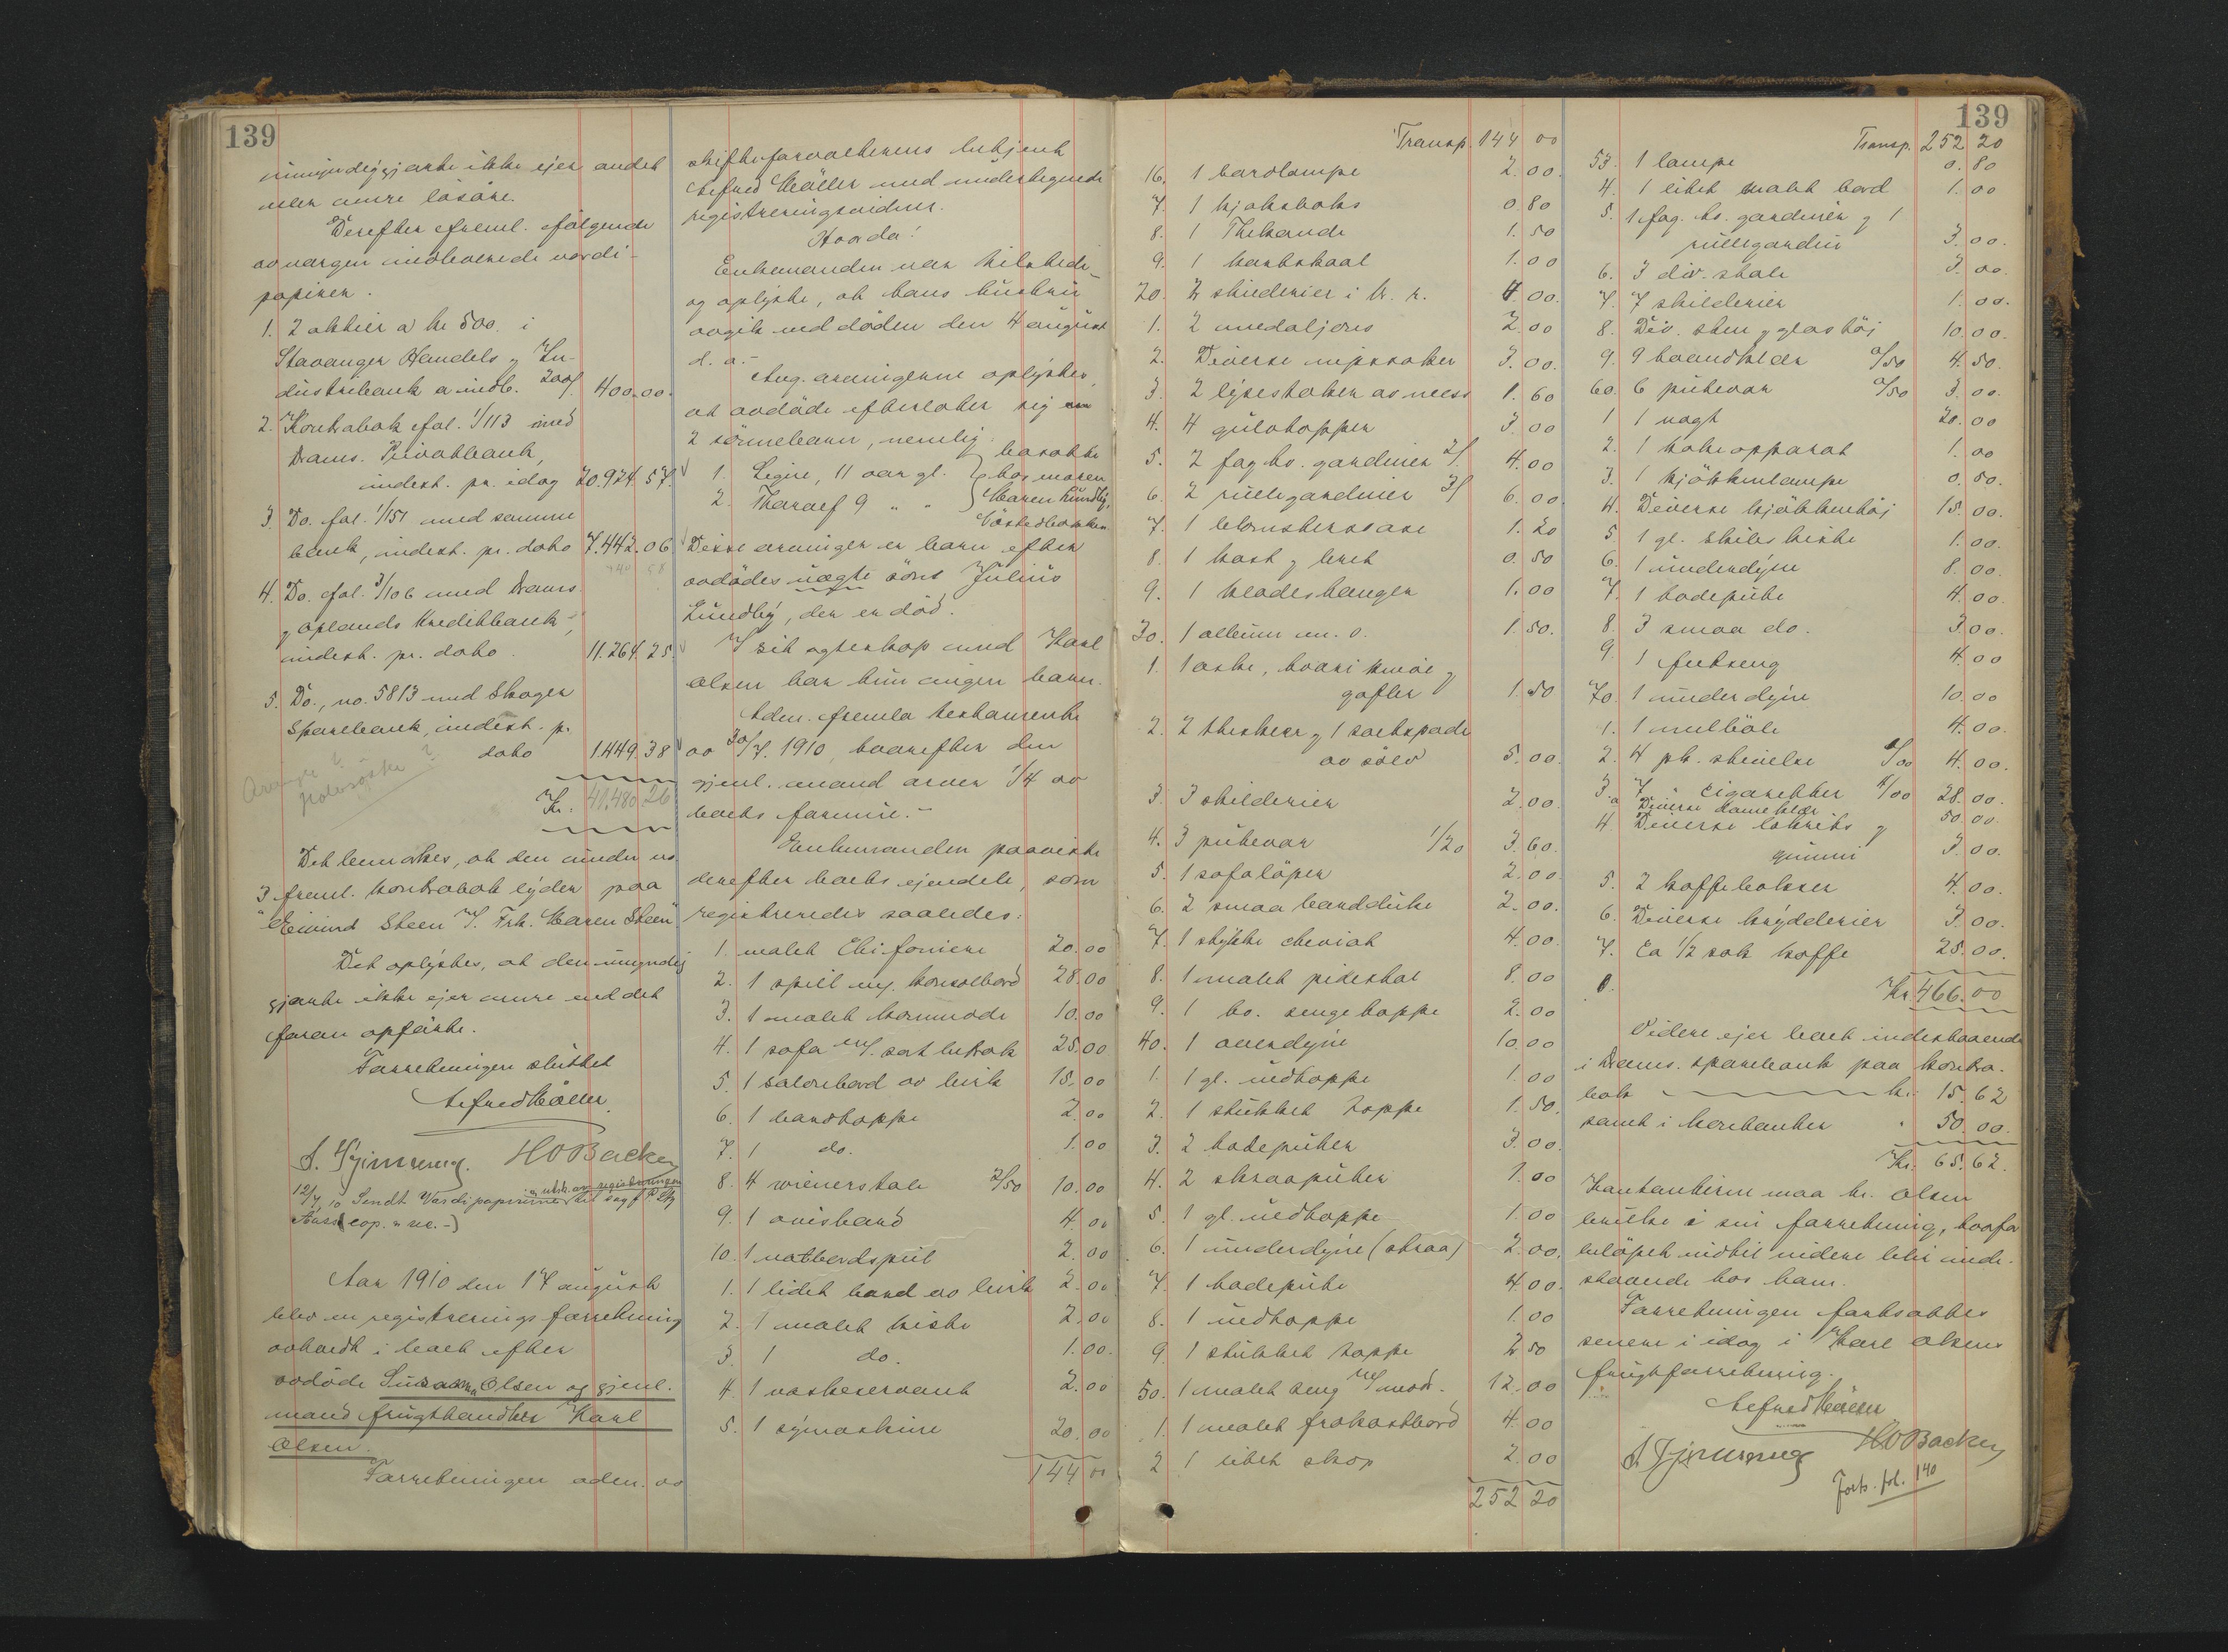 139
umyndiggjorte ikke ejer andet
eller mere løsøre.
Derefter freml. følgende
av vergen medbrente værdi-
papirer.
1. 2 aktier a kr 500. i
Stavanger Handels og In-
dustribank a indb. 200/. 400.00.
2. Kontrabok fol. 1/113 med
Drams. Privatbank,
indest. pr. idag 20.924.57.
3. Do. fol. 1/151 med samme
bank, indest. pr. dato 7.442.06
4. Do. fol. 3/106 med Drams
og Oplands Kreditbank,
indest. pr. dato 11.264.25.
5. Do., no. 5813 med Skoger
Sparebank, indest. pr.
dato 1.449.38
Kr. 41.480.26
Det bemærkes, at den under no.
3 freml. kontrabok lyder paa
"Eivind Steen Frk. Maren Steen"
Det oplystes, at den umyndig
gjorte ikke ejer mere end det
foran opførte.
Forretningen sluttet
Alfred Møller.
HOBacke
12/7 10 Sendt Værdipapirerne
Aar 1910 den 17 august
blev en registreringsforretning
avholdt i boet efter
avdøde Susanna Olsen og gjenl.
mand frugthandler Karl
Olsen.
Forretningen adm. av
skifteforvalterens betjent
Alfred Møller med undertegnede
registreringsvidner.
Hvorda!
Enkemanden var tilstede
og oplyste, at hans hustru
avgik ved døden den 4 august
d. a.-
Ang. arvingerne oplystes,
at avdøde efterlater sig
2 sønnebarn, nemlig:
1. Signe, 11 aar gl.
2. Tharaef 9 " "
bosatte
hos moren
Maren Lundby,
Disse arvinger er barn efter
avdødes uegte søns Julius
Lundby, der er død.
I sit egteskap med Karl
Olsen har hun ingen barn.
Adm. fremla testamente
av 30/7. 1910, hvorefter den
gjenl. mand arver 1/4 av
boets formue.-
Enkemanden paaviste
derefter boets ejendele, som
registreredes saaledes:
1. malet Chifoniere 20.00
2. 1 speil m/. konsolbord 28.00
3. 1 malet kommode 10.00
4. 1 sofa m/. sort betræk 25.00
5. 1 salonbord av birk 15.00
6. 1 bordteppe 2.00
7. 1 do. 1.00
8. 4 wienerstole 2/50 10.00
9. 1 avisbord 4.00
10. 1 natbordspeil 2.00
1. 1 lidet bord av birk 2.00
2. 1 malet kiste 2.00
3. 1 do. 1.00.
4. 1 vaskeservant 2.00
5. 1 symaskine 20.00
144 00
139
Transp. 144 00
16. 1 bordlampe 2.00.
7. 1 kjeksboks 0.80
8. 1 Thekande 1.50
9. 1 kortskaal 1.00
20. 2 skilderier i br. r. 4.00.
1. 2 medaljons 2.00
2. Diverse nipssaker 3.00.
3. 2 lysestaker av mess 1.60
4. 4 gulvtepper 3.00
5. 2 fag hv. gardiner 2/. 4.00
6. 2 rullegardiner 3/ 6.00
7. 1 blomstervase 1.20
8. 1 kost og bret 0.50
9. 1 klædeshenger 1.00
30. 1 album m. v. 1.50.
1. 1 æske, hvori knive og
gafler 1.50
2. 2 theskeer og 1 kakespade
av sølv 5.00.
3. 3 skilderier 2.00.
4. 3 putevar 1/20 3.60.
5. 1 sofaløper 2.00
6. 2 smaa bordduke 2.00.
7. 1 stykke cheviot 4.00.
8. 1 malet pidestal 8.00
9. 1 hv. sengeteppe 2.00
40. 1 overdyne 10.00
1. 1 gl. uldteppe 1.00
2. 1 stukket teppe 1.50.
3. 2 hodeputer 3.00.
4. 2 skraaputer 1.00
5. 1 gl. uldteppe 1.00
6. 1 underdyne (straa) 2.00.
7. 1 hodepute 4.00.
8. 1 uldteppe 1.00
9. 1 stukket teppe 2.50
50. 1 malet seng m/ mad. 12.00
1. 1 malet frokostbord 4.00
2 1 litet skap 2.00
252 20
Transp. 252 20
53. 1 lampe 0.80
4. 1 litet malet bord 1.00
5. 1 fag. hv. gardiner og 1
rullegardin 3.00.
6. 3 div. stole 3.00.
7. 7 skilderier 1.00.
8. Div. sten og glastøi 10.00.
9. 9 haandklær 0/50 4.50.
60. 6 putevar 0/50 3.00.
1 1 vegt 20.00
2. 1 kokeapparat 1.00
3. 1 kjøkkenlampe 0.50.
4. Diverse kjøkkentøi 15.00.
5 1 gl. skibskiste 1.00.
6. 1 underdyne 8.00.
7. 1 hodepute 4.00.
8. 3 smaa do. 3.00.
9. 1 feltseng 4.00
70. 1 underdyne 10.00
1. 1 multbøle 4.00.
2. 4 pk. stivelse 4.00.
3. 7 " Cigaretter 4/00 28.00.
a Diverse dameklær 50.00.
4 Diverse lakrits og
gummi 3.00.
5. 2 kaffebokser 4.00.
6. Diverse krydderier 3.00.
7. Ca 1/2 sæk kaffe 25.00.
Kr. 466.00
Videre ejer boet indestaaende
i Drams. sparebank paa kontra-
bok kr. 15.62
samt i kontanter " 50.00.
Kr. 65.62.
Kontanterne maa hr. Olsen
benytte i sin forretning, hvorfor
beløpet indtil videre blir inde-
staaende hos ham.
Forretningen fortsattes
senere i idag i Karl Olsens
frugtforretning.
Alfred Møller
HOBacke
Forts. fol. 140